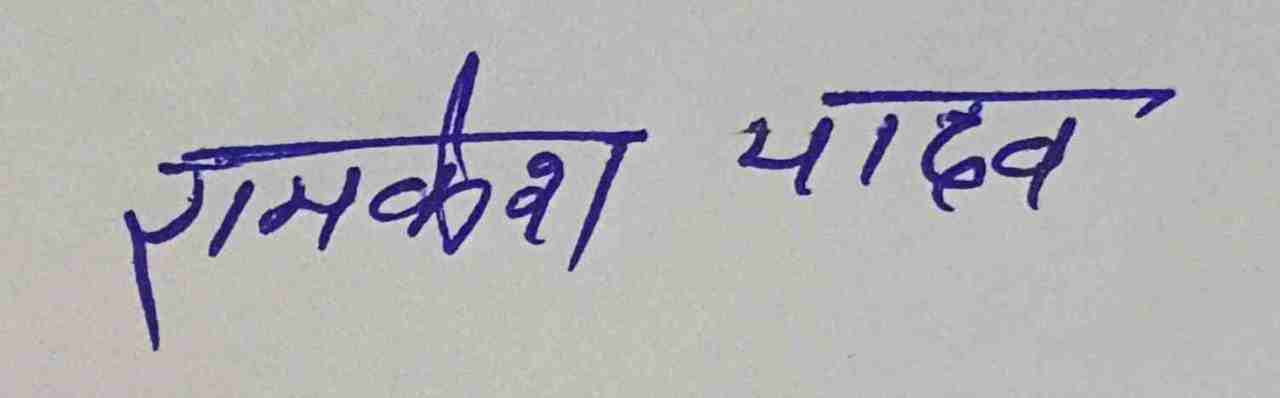 रामकेश यादव